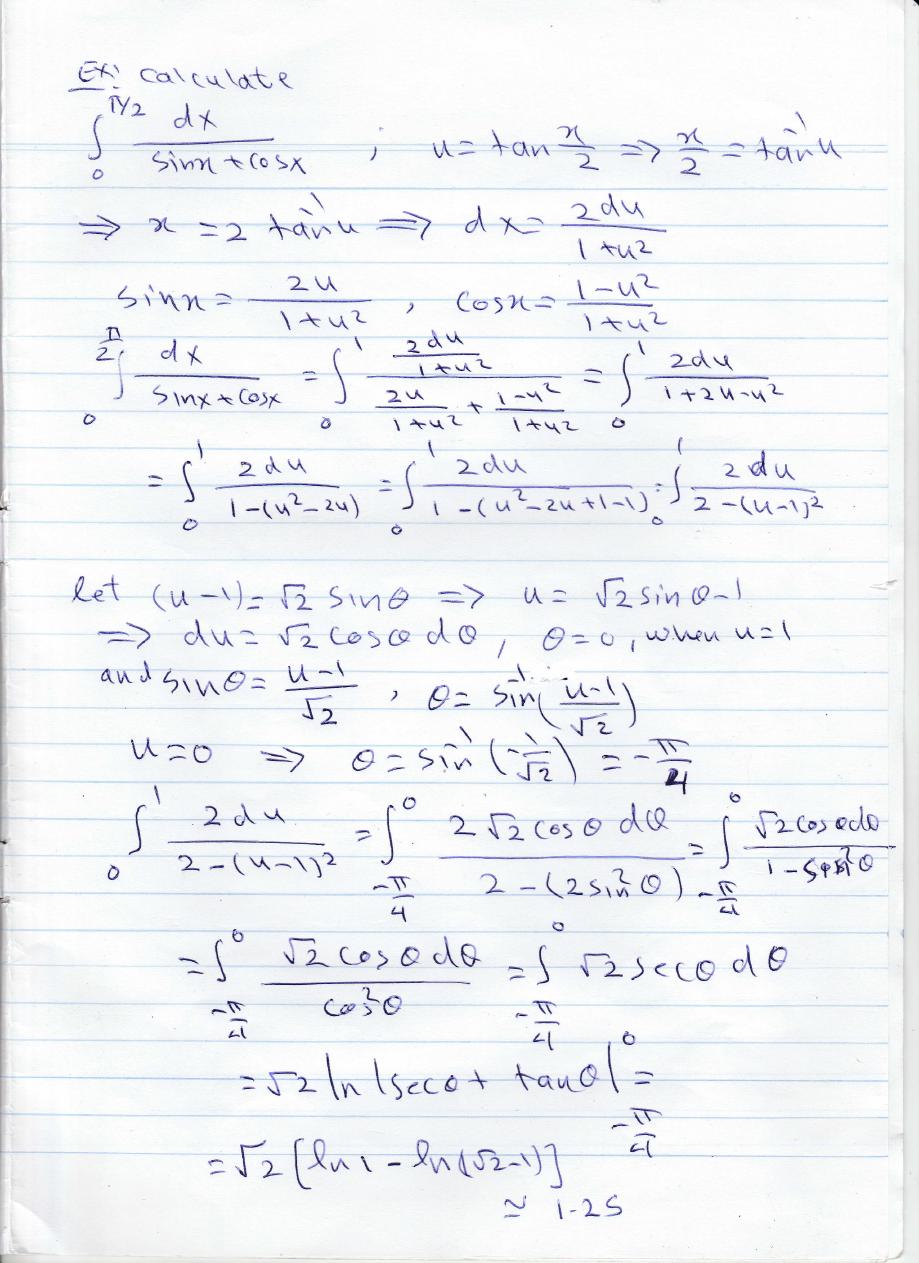 Ex: calculate
∫₀^{π/2} dx/(sinx + cosx) ; u = tan x/2 ⇒ x/2 = tan⁻¹u
⇒ x = 2 tan⁻¹u ⇒ dx = 2du/(1+u²)
sinx = 2u/(1+u²) , cosx = (1-u²)/(1+u²)
∫₀^{π/2} dx/(sinx + cosx) = ∫₀¹ (2du/(1+u²))/(2u/(1+u²) + (1-u²)/(1+u²)) = ∫₀¹ 2du/(1+2u-u²)
= ∫₀¹ 2du/(1-(u²-2u)) = ∫₀¹ 2du/(1-(u²-2u+1-1)) = ∫₀¹ 2du/(2-(u-1)²)
let (u-1) = √2 sinθ ⇒ u = √2 sinθ-1
⇒ du = √2 cosθ dθ , θ=0, when u=1
and sinθ = (u-1)/√2 , θ = sin⁻¹((u-1)/√2)
u=0 ⇒ θ = sin⁻¹(-1/√2) = -π/4
∫₀¹ 2du/(2-(u-1)²) = ∫_{-π/4}^0 2√2 cosθ dθ/(2-(2sin²θ)) = ∫_{-π/4}^0 √2 cosθ dθ/(1-sin²θ)
= ∫_{-π/4}^0 √2 cosθ dθ/cos²θ = ∫_{-π/4}^0 √2 secθ dθ
= √2 ln|secθ + tanθ| |_{-π/4}^0 =
= √2 [ln1 - ln(√2-1)]
≃ 1.25